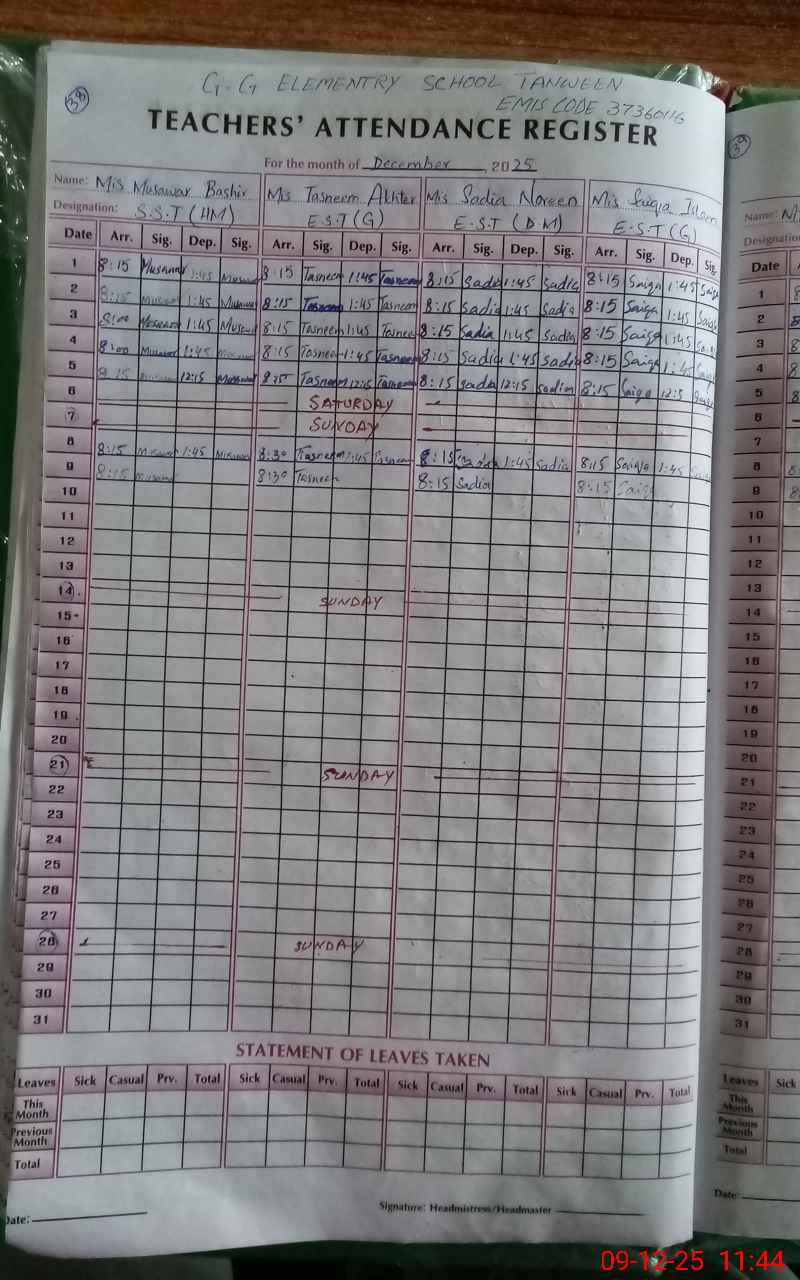 39
G.G ELEMENTRY SCHOOL TANWEEN
EMIS CODE 37360116
TEACHERS' ATTENDANCE REGISTER
For the month of December, 2025
Name: Mis Musawar Bashir Mis Tasneem Akhter Mis Sadia Noreen Mis Saiqa Islam
Designation: S.S.T (HM) E.S.T (G) E.S.T (D M) E.S.T (G)
Date Arr. Sig. Dep. Sig. Arr. Sig. Dep. Sig. Arr. Sig. Dep. Sig. Arr. Sig. Dep. Sig.
1 8:15 Musawar 1:45 Musawar 8:15 Tasneem 1:45 Tasneem 8:15 Sadia 1:45 Sadia 8:15 Saiqa 1:45 Saiqa
2 8:15 Musawar 1:45 Musawar 8:15 Tasneem 1:45 Tasneem 8:15 Sadia 1:45 Sadia 8:15 Saiqa 1:45 Saiqa
3 8:00 Musawar 1:45 Musawar 8:15 Tasneem 1:45 Tasneem 8:15 Sadia 1:45 Sadia 8:15 Saiqa 1:45
4 8:00 Musawar 1:45 8:15 Tasneem 1:45 Tasneem 8:15 Sadia 1:45 Sadia 8:15 Saiqa 1:45 Saiqa
5 8:15 12:15 Musawar 8:15 Tasneem 12:15 Tasneem 8:15 Sadia 12:15 Sadia 8:15 Saiqa 12:5 Saiqa
6 SATURDAY
7 SUNDAY
8 8:15 Musawar 1:45 Musawar 8:30 Tasneem 1:45 Tasneem 8:15 1:45 Sadia 8:15 Saiqa 1:45
9 8:15 Musawar 8:30 Tasneem 8:15 Sadia 8:15 Saiqa
10
11
12
13
14 SUNDAY
15
16
17
18
19
20
21 SUNDAY
22
23
24
25
26
27
28 SUNDAY
29
30
31
STATEMENT OF LEAVES TAKEN
Leaves Sick Casual Prv. Total Sick Casual Prv. Total Sick Casual Prv. Total Sick Casual Prv. Total
This
Month
Previous
Month
Total
Date:
Signature: Headmistress/Headmaster
39
Name:
Designation
Date
1 8
2 8
3 8
4 8
5 8
6
7
8 8
9 8
10
11
12
13
14
15
16
17
18
19
20
21
22
23
24
25
26
27
28
29
30
31
Leaves Sick
This
Month
Previous
Month
Total
Date:
09-12-25 11:44